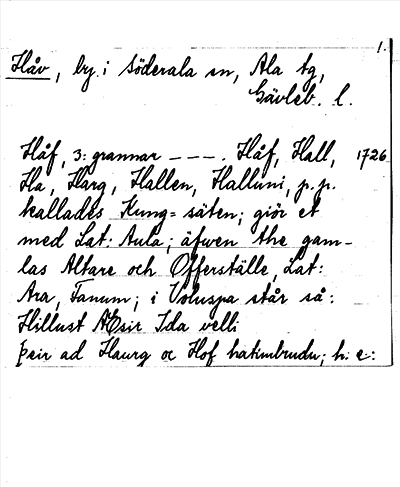 1.
Håv, by i Söderala sn, Ala tg,
Gävleb. l.
Håf, 3: grannar – – – . Håf, Hall, 1726
Ha, Harg, Hallen, Halluni, p.p.
kallades Kung= säten; giör et
med Lat: Aula; äfwen the gam-
las Altare och Offerställe, Lat:
Ara, Fanum; i Voluspa står så:
Hillust AEsir Ida velli
þeir ad Haurg oc Hof hatimbrudu; h. e: